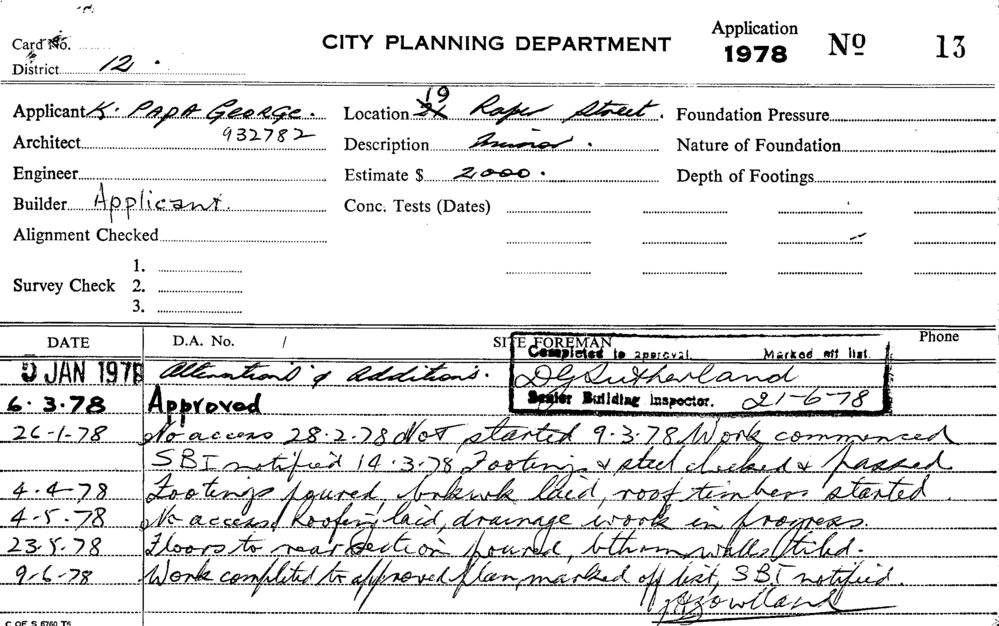 Card No.
CITY PLANNING DEPARTMENT
Application
1978 Nº 13
District 12.
Applicant K. PAPA GEORGE. Location 19 Raper Street. Foundation Pressure
Architect 932782 Description Minor. Nature of Foundation
Engineer Estimate $ 2,000. Depth of Footings
Builder Applicant. Conc. Tests (Dates)
Alignment Checked
1.
Survey Check 2.
3.
DATE D.A. No. / SITE FOREMAN Phone
Completed to approval. Marked off list.
JAN 1978 Alterations & Additions. DG Sutherland
6.3.78 Approved Senior Building Inspector. 21-6-78
26-1-78 No access 28.2.78 Not started 9.3.78 Work commenced
SBI notified 14.3.78 Footings & steel checked & passed
4-4-78 Footings poured, brkwk laid, roof timbers started.
4-5.78 No access, Roofing laid, drainage work in progress.
23.5.78 Floors to rear section poured, bthrm walls tiled.
9-6-78 Work completed to approved plan, marked off list, SBI notified.
C OF S 6760 T5